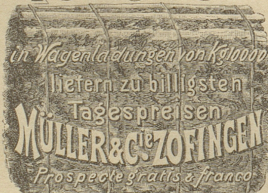 in Wagenladungen von Kg 10000
liefern zu billigsten
Tagespreisen
MÜLLER & Cie ZOFINGEN
Prospecte gratis & franco